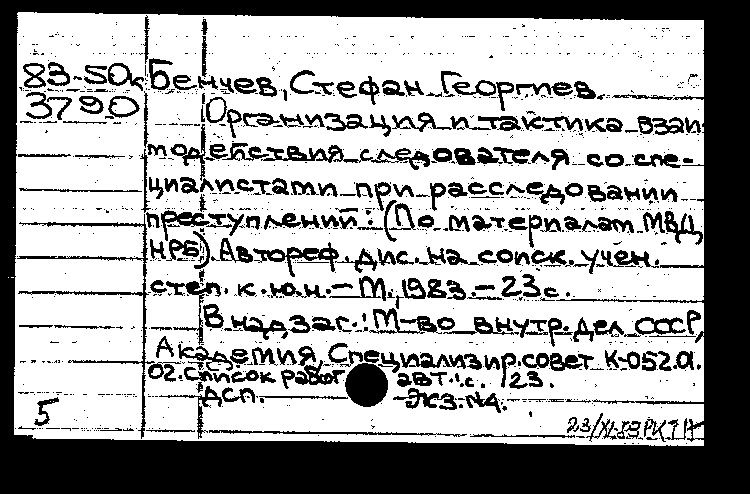 83-50к Бенчев, Стефан Георгиев.
3790 Организация и тактика взаи
модействия следователя со спе-
циалистами при расследовании
преступлений: (По материалам МВД
НРБ). Автореф. дис. на соиск. учен.
степ. к.ю.н. - М., 1983. - 23с.
В надзаг.: М-во внутр. дел СССР,
Академия, Специализир. совет К-052.01.
02. Список работ авт.: с. 23.
ДСП. Экз. №4.
5